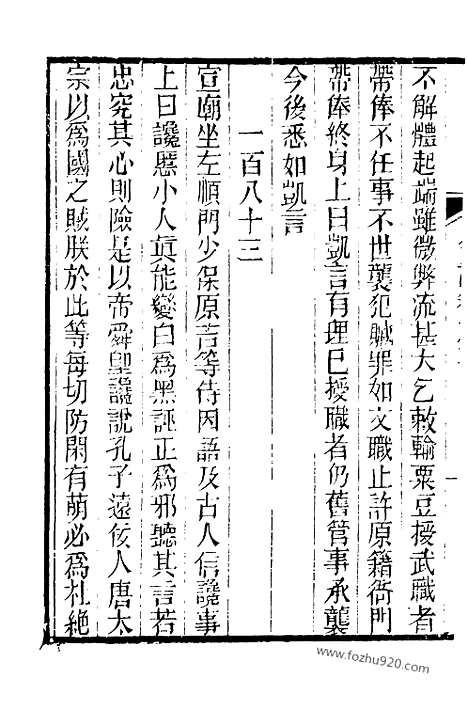 不解體起端雖微弊流甚大乞敕輸粟豆授武職者
帶俸不任事不世襲犯贓罪如文職止許原籍衙門
帶俸終身上曰凱言有理已授職者仍舊管事承襲
今後悉如凱言
一百八十三
宣廟坐左順門少保原吉等侍因語及古人信讒事
上曰讒慝小人眞能變白爲黑誣正爲邪聽其言若
忠究其心則險是以帝舜堲讒說孔子遠佞人唐太
宗以爲國之賊朕於此等每切防閑有萌必爲杜絶
www.fozhu920.com